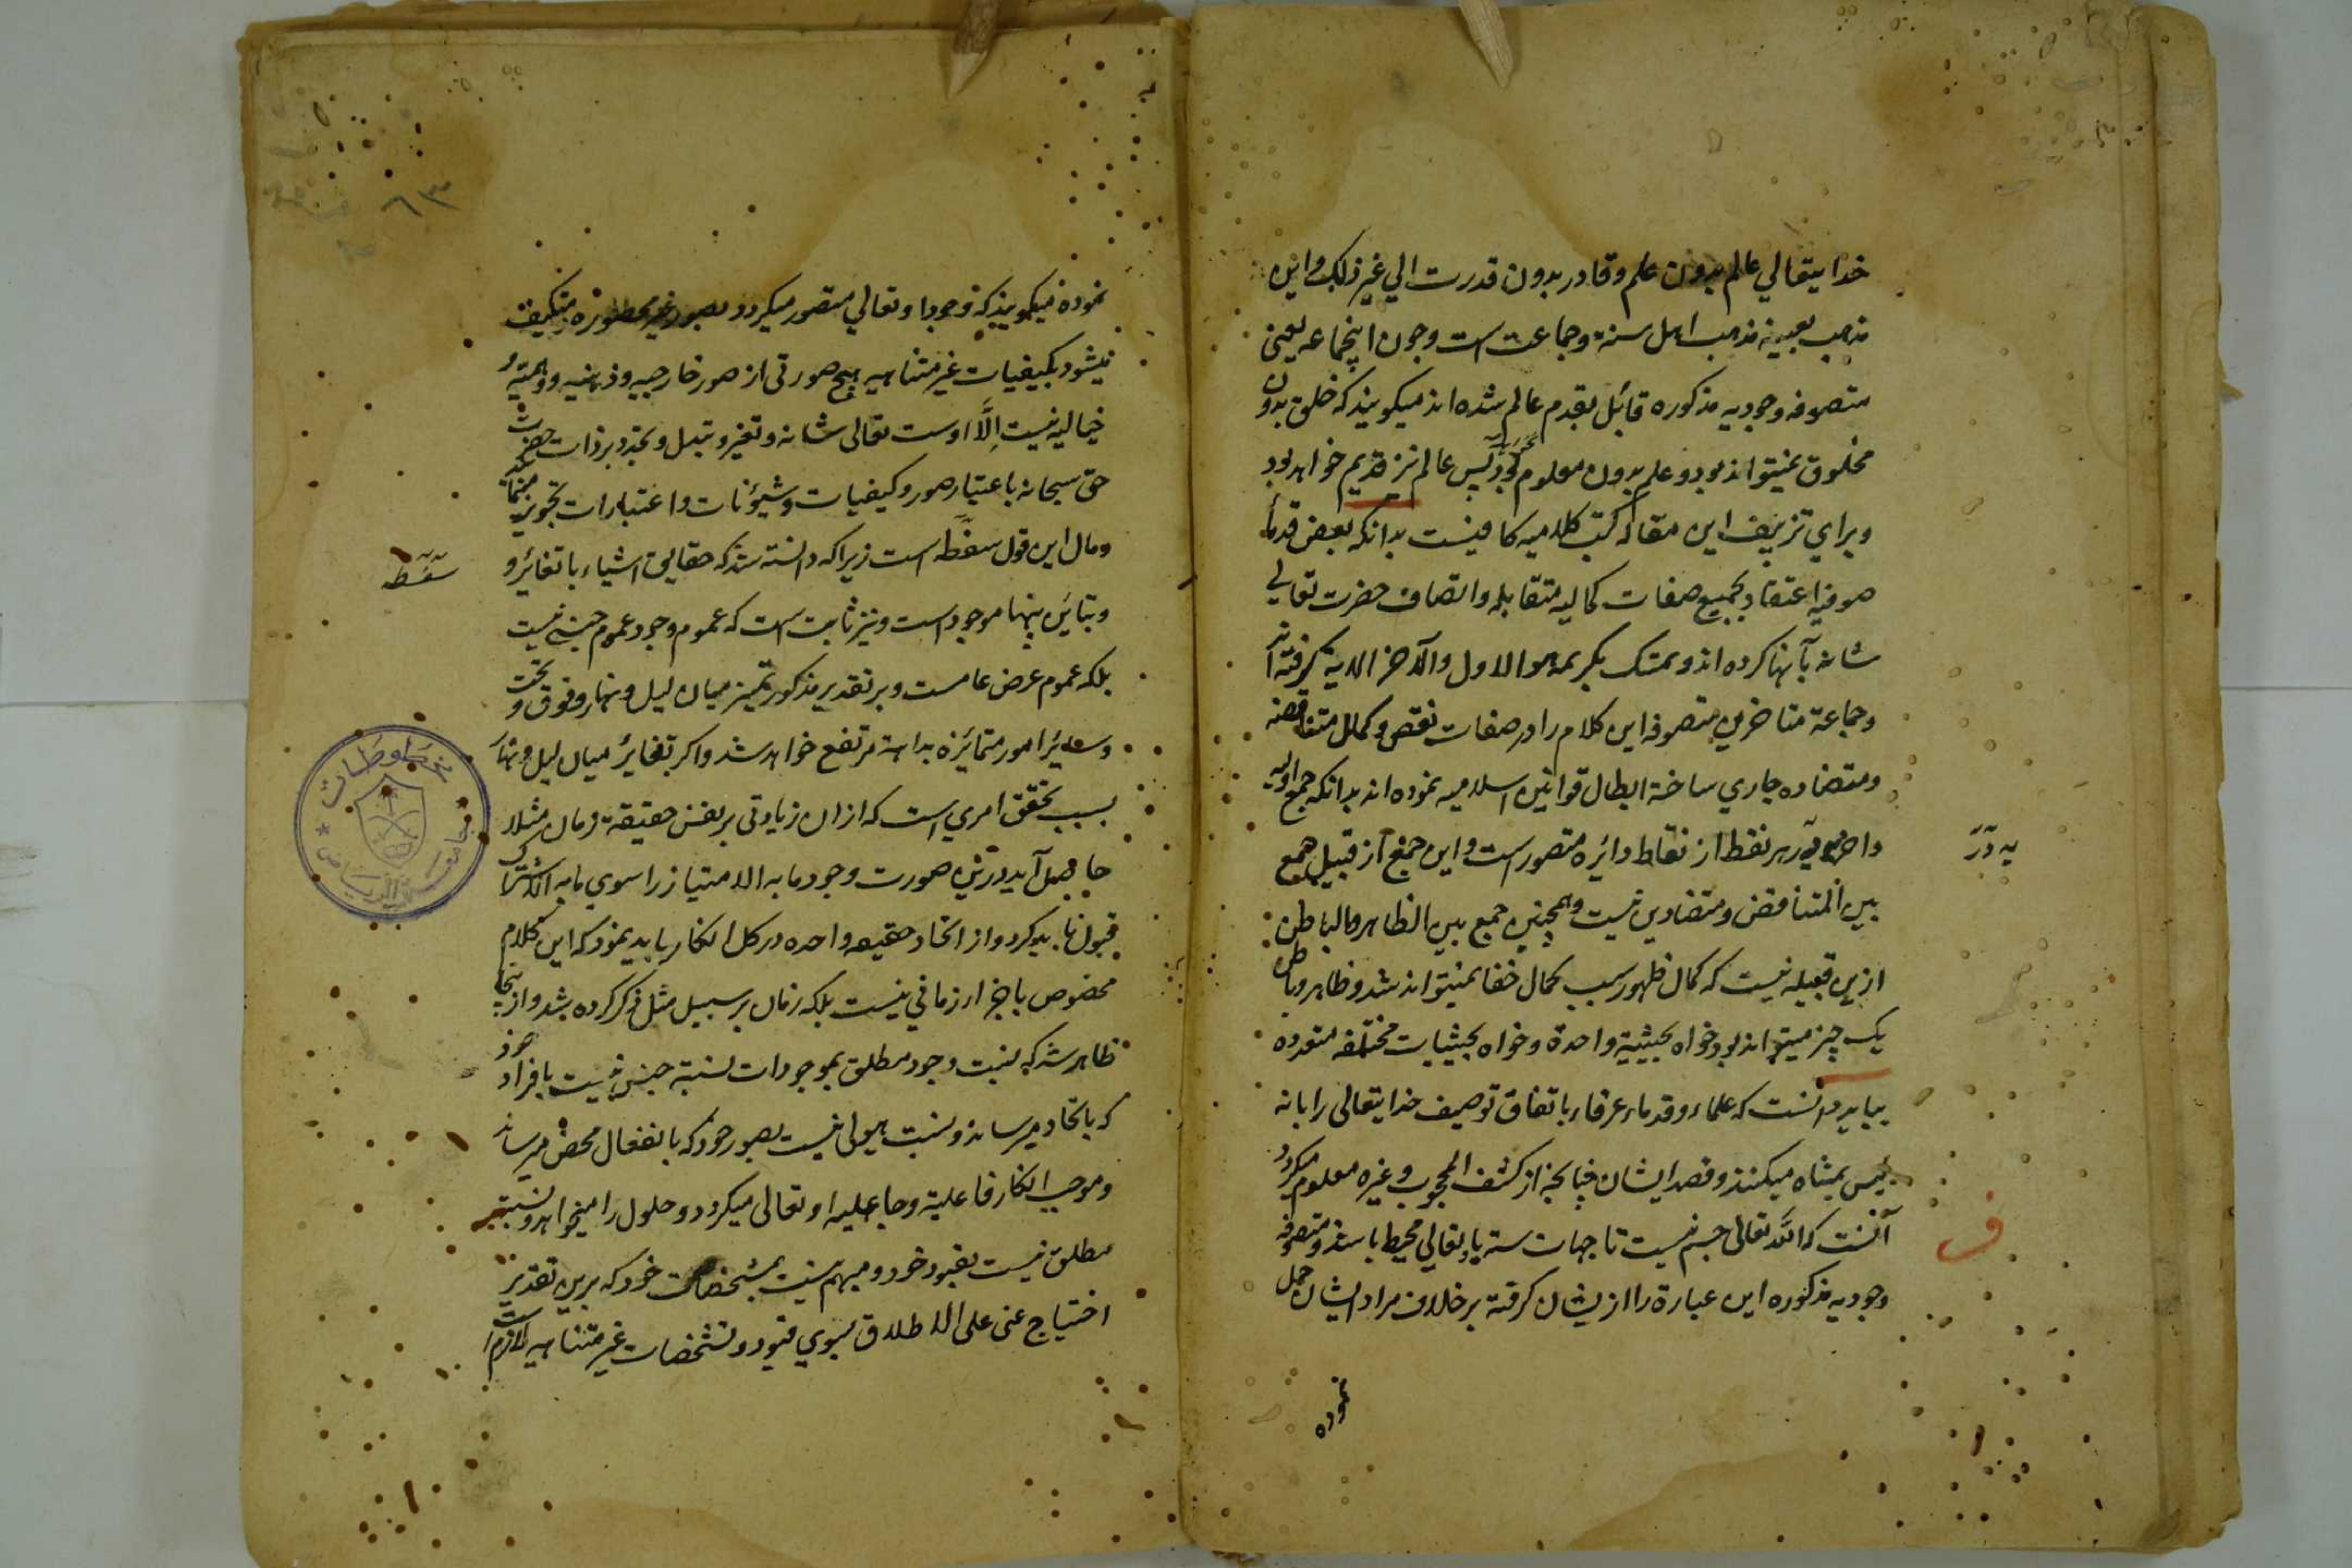 خدایتعالی عالم بدون علم و قادر بدون قدرت الی غیر ذلک و این
مذهب بعینه مذهب اهل سنة و جماعت است و چون اینجماعه یعنی
متصوفه وجودیه مذکوره قائل بقدم عالم شده اند میکویند که خلق بدون
مخلوق نمیتواند بود و علم بدون معلوم نبود پس عالم نیز قدیم خواهد بود
و برای تزییف این مقاله کتب کلامیه کافیست بدانکه بعض قدمآ
صوفیه اعتقاد بجمیع صفات کمالیه متقابله و اتصاف حضرت تعالی
شانه بآنها کرده اند و تمسک بکریمه هو الاول والآخر الایة کرفته اند
و جماعة متاخرین متصوفه این کلام را در صفات نقص و کمال متناقضه
و متضاده جاری ساخته ابطال قوانین اسلامیه نموده اند بدانکه جمع اولیه
و اخریه در هر نقطه از نقاط دائره متصور است و این جمع از قبیل جمع
یه در
بین المتناقض و متضادین نیست و همچنین جمع بین الظاهر والباطن
ازین قبیله نیست که کمال ظهور سبب کمال خفا نمیتواند شد و ظاهر و باطن
یک چیز میتواند بود خواه بحیثیة واحدة و خواه بحیثیات مختلفه متعدده
بباید دانست که علماء و قدماء عرفاء باتفاق توصیف خدایتعالی را بانه
لیس بمتناه میکنند و قصد ایشان چنانچه از کشف المحجوب و غیره معلوم میکردد
آنست که الله تعالی جسم نیست تا جهات سته باو تعالی محیط باشند و متصوفه
ف
وجودیه مذکوره این عبارة را از یشان کرفته بر خلاف مراد ایشان حمل
نموده
٦٣
نموده میکویند که وجود او تعالی متصور میکردد بصور غیر محصوره و متکیف
میشود بکیفیات غیر متناهیه هیچ صورتی از صور خارجیه و ذهنیه و وهمیه
خیالیه نیست اِلَّا اوست تعالی شانه و تغیر و تبدل و تجدد بر ذات حضرت
حق سبحانه باعتبار صور و کیفیات و شیونات و اعتبارات تجویز مینماید
و مال این قول سفسطه است زیرا که دانسته شد که حقایق اشیاء با تغائر و
سفسطه
و تباین بینها موجود است و نیز ثابت است که عموم وجود عموم جنسی نیست
بلکه عموم عرض عامست و بر تقدیر مذکور تمیز میان لیل و نهار و فوق و تحت
و سایر امور متمائزه بداهة مرتفع خواهد شد و اکر تغایر میان لیل و نهار
بسبب تحقق امری است که از ان زیادتی بر نفس حقیقة زمان مثلا
حاصل آید درین صورت وجود ما به الامتیاز را سوی ما به الاشتراک
قبول باید کرد و از اتحاد حقیقه واحده در کل انکار باید نمود که این کلام
مخصوص باجزاء زمانی نیست بلکه زمان بر سبیل مثل ذکر کرده شد و از ینجا
ظاهر شد که نسبت وجود مطلق بموجودات نسبة جنس نیست بافراد خود
که باتحاد میرساند و نسبت هیولی نیست بصور خود که بانفعال محض میرساند
و موجب انکار فاعلیة و جاعلیه او تعالی میکردد و حلول را میخواهد و نسبة
مطلق نیست بقیود خود و مبهم نیست بمشخصات خود که برین تقدیر
احتیاج غنی علی الاطلاق بسوی قیود و تشخصات غیر متناهیه لازم است
مخطوطات
جامعة الریاض